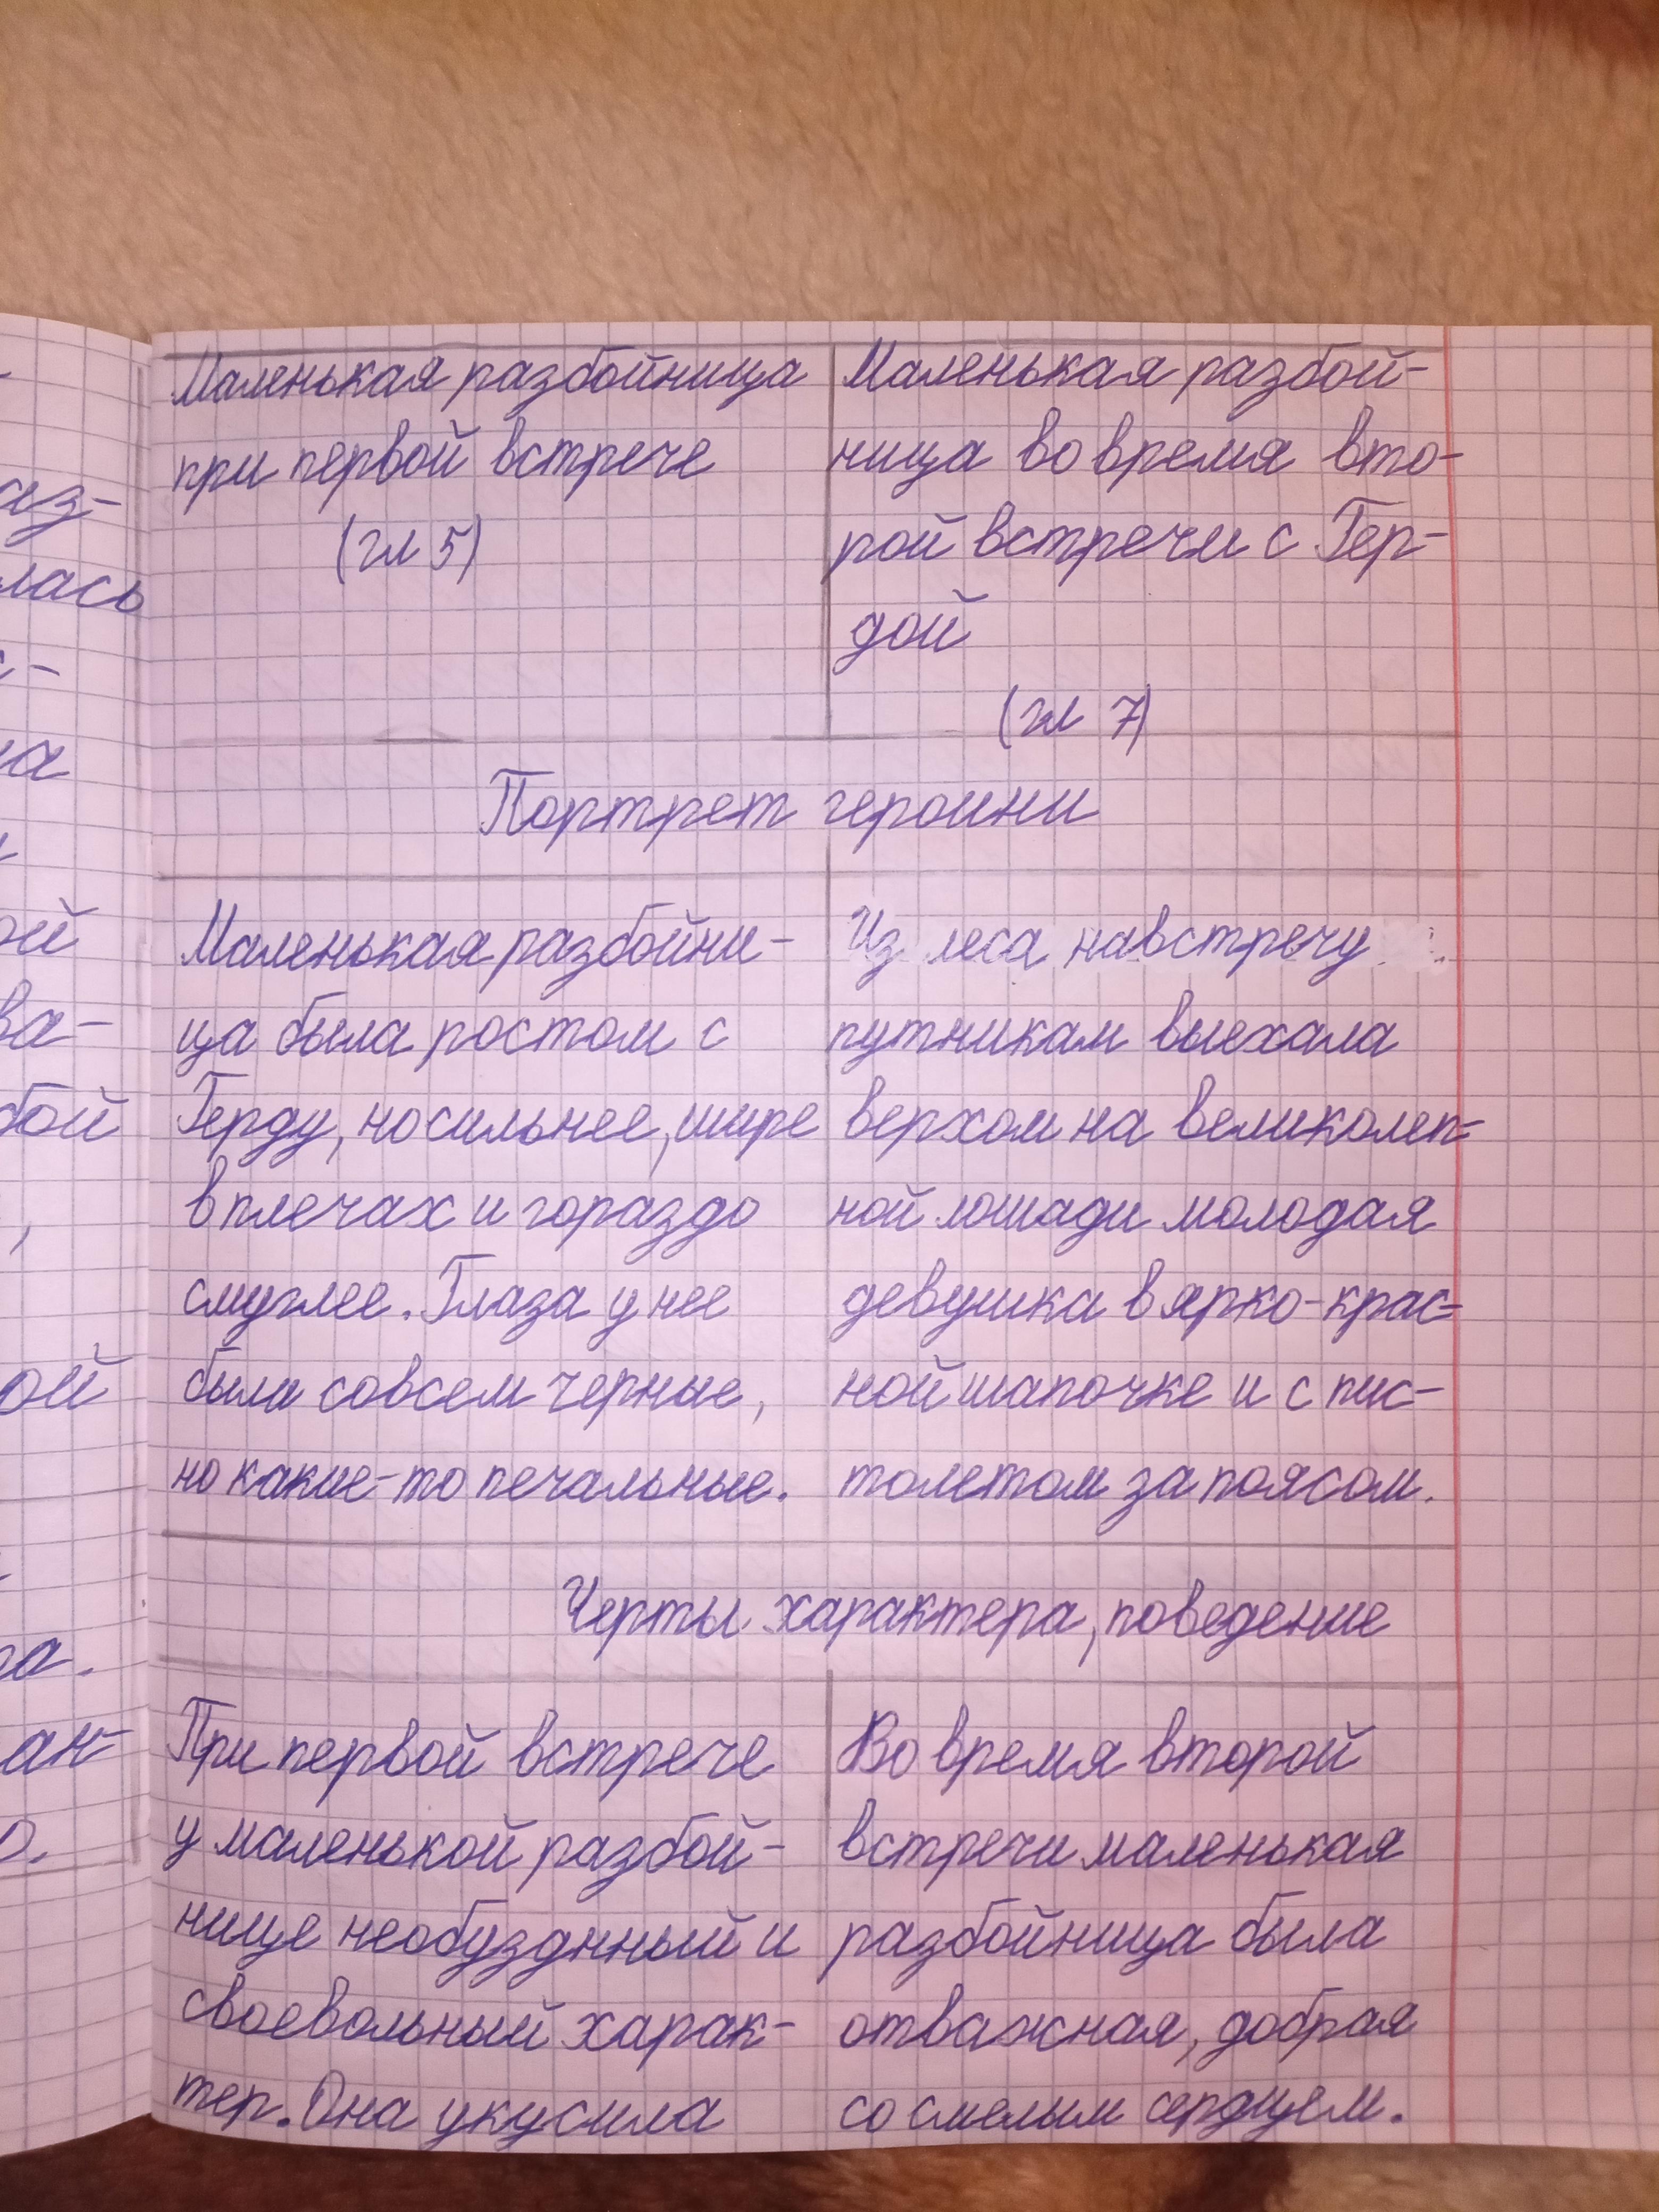 Маленькая разбойница
при первой встрече
(гл 5)
Маленькая разбой-
ница во время вто-
рой встречи с Гер-
дой
(гл 7)
Портрет героини
Маленькая разбойни-
ца была ростом с
Герду, но сильнее, шире
в плечах и гораздо
смуглее. Глаза у нее
были совсем черные,
но какие-то печальные.
Из леса навстречу
путникам выехала
верхом на великолеп-
ной лошади молодая
девушка в ярко-крас-
ной шапочке и с пис-
толетом за поясом.
Черты характера, поведение
При первой встрече
у маленькой разбой-
нице необузднный и
своевольный харак-
тер. Она укусила
Во время второй
встречи маленькая
разбойница была
отважная, добрая
со смелым сердцем.